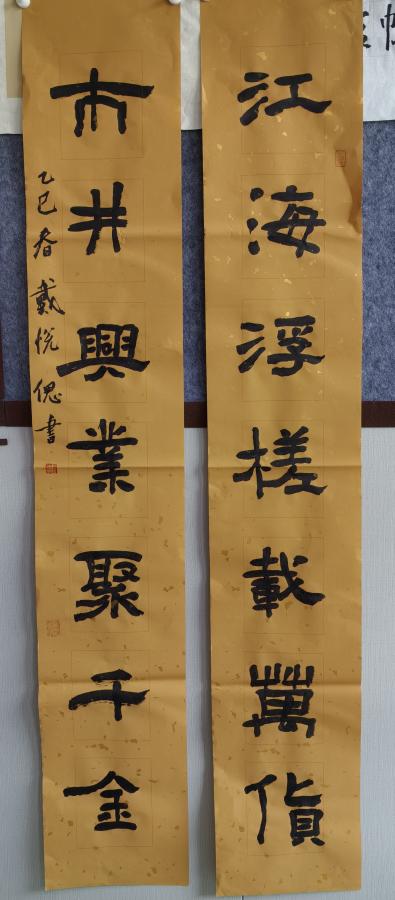 江海浮槎載萬貨
市井興業聚千金
乙巳春戴悦偲書